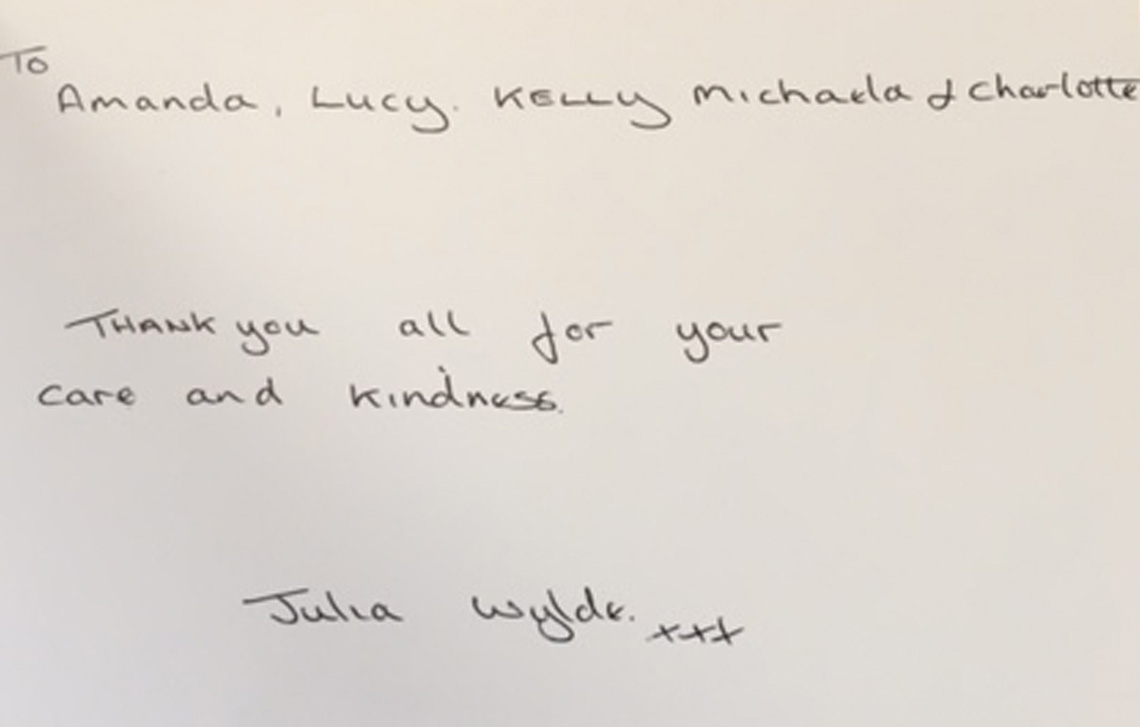 To
Amanda, Lucy. Kelly Michaela & Charlotte
Thank you all for your
care and kindness.
Julia Wylde. xxx